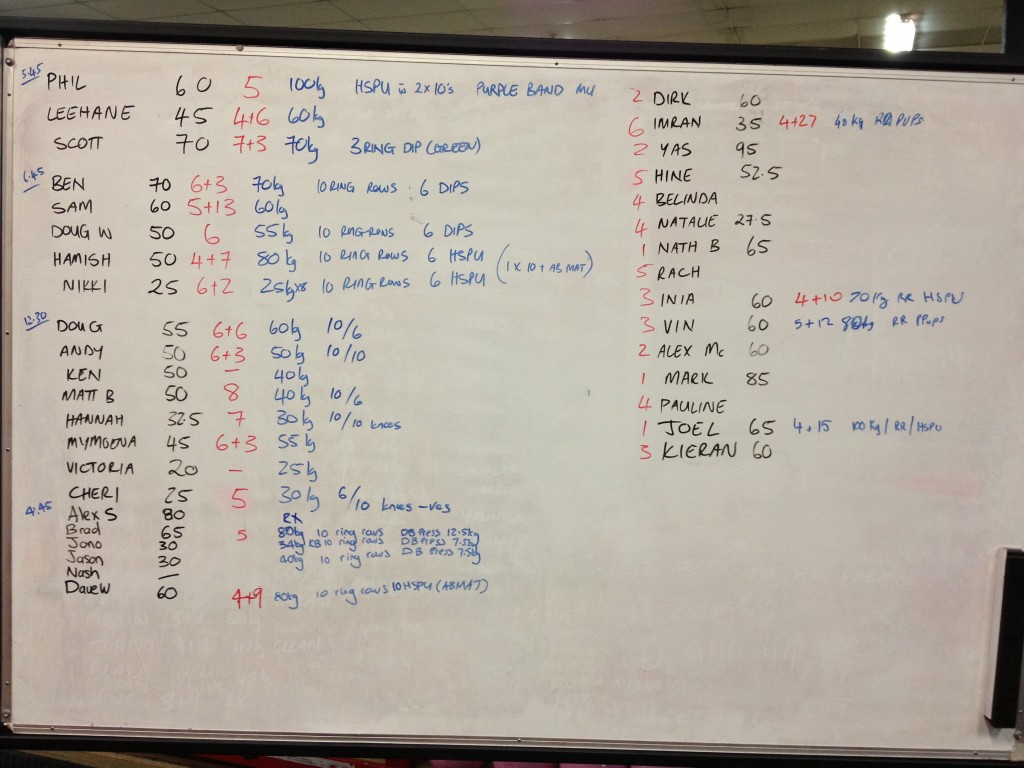 5.45 PHIL 60 5 100kg HSPU in 2x10's PURPLE BAND MU
LEEHANE 45 4+6 60kg
SCOTT 70 7+3 70kg 3 RING DIP (GREEN)
6.45 BEN 70 6+3 70kg 10 RING ROWS . 6 DIPS
SAM 60 5+13 60kg
DOUG W 50 6 55kg 10 RING ROWS 6 DIPS
HAMISH 50 4+7 80kg 10 RING ROWS 6 HSPU (1 x 10 + ABMAT)
NIKKI 25 6+2 25kgx8 10 RING ROWS 6 HSPU
12.30 DOUG 55 6+6 60kg 10/6
ANDY 50 6+3 50kg 10/10
KEN 50 – 40kg
MATT B 50 8 40kg 10/6
HANNAH 32.5 7 30kg 10/10 knees
MYMGENA 45 6+3 55kg
VICTORIA 20 – 25kg
CHERI 25 5 30kg 6/10 knees
4:45 Alex S 80 RX
Brad 65 5 80kg 10 ring rows DB Press 12.5kg
Jono 30 34kg KB 10 ring rows DB Press 7.5kg
Jason 30 40kg 10 ring rows DB Press 7.5kg
Nash –
Dave W 60 4+9 80kg 10 ring rows 10 HSPU (ABMAT)
2 DIRK 60
6 IMRAN 35 4+27 40kg RR PUPS
2 YAS 95
5 HINE 52.5
4 BELINDA
4 NATALIE 27.5
1 NATH B 65
5 RACH
3 INIA 60 4+10 70kg RR HSPU
3 VIN 60 5+12 80kg RR PPups
2 ALEX Mc 60
1 MARK 85
4 PAULINE
1 JOEL 65 4+15 100kg/RR/HSPU
3 KIERAN 60